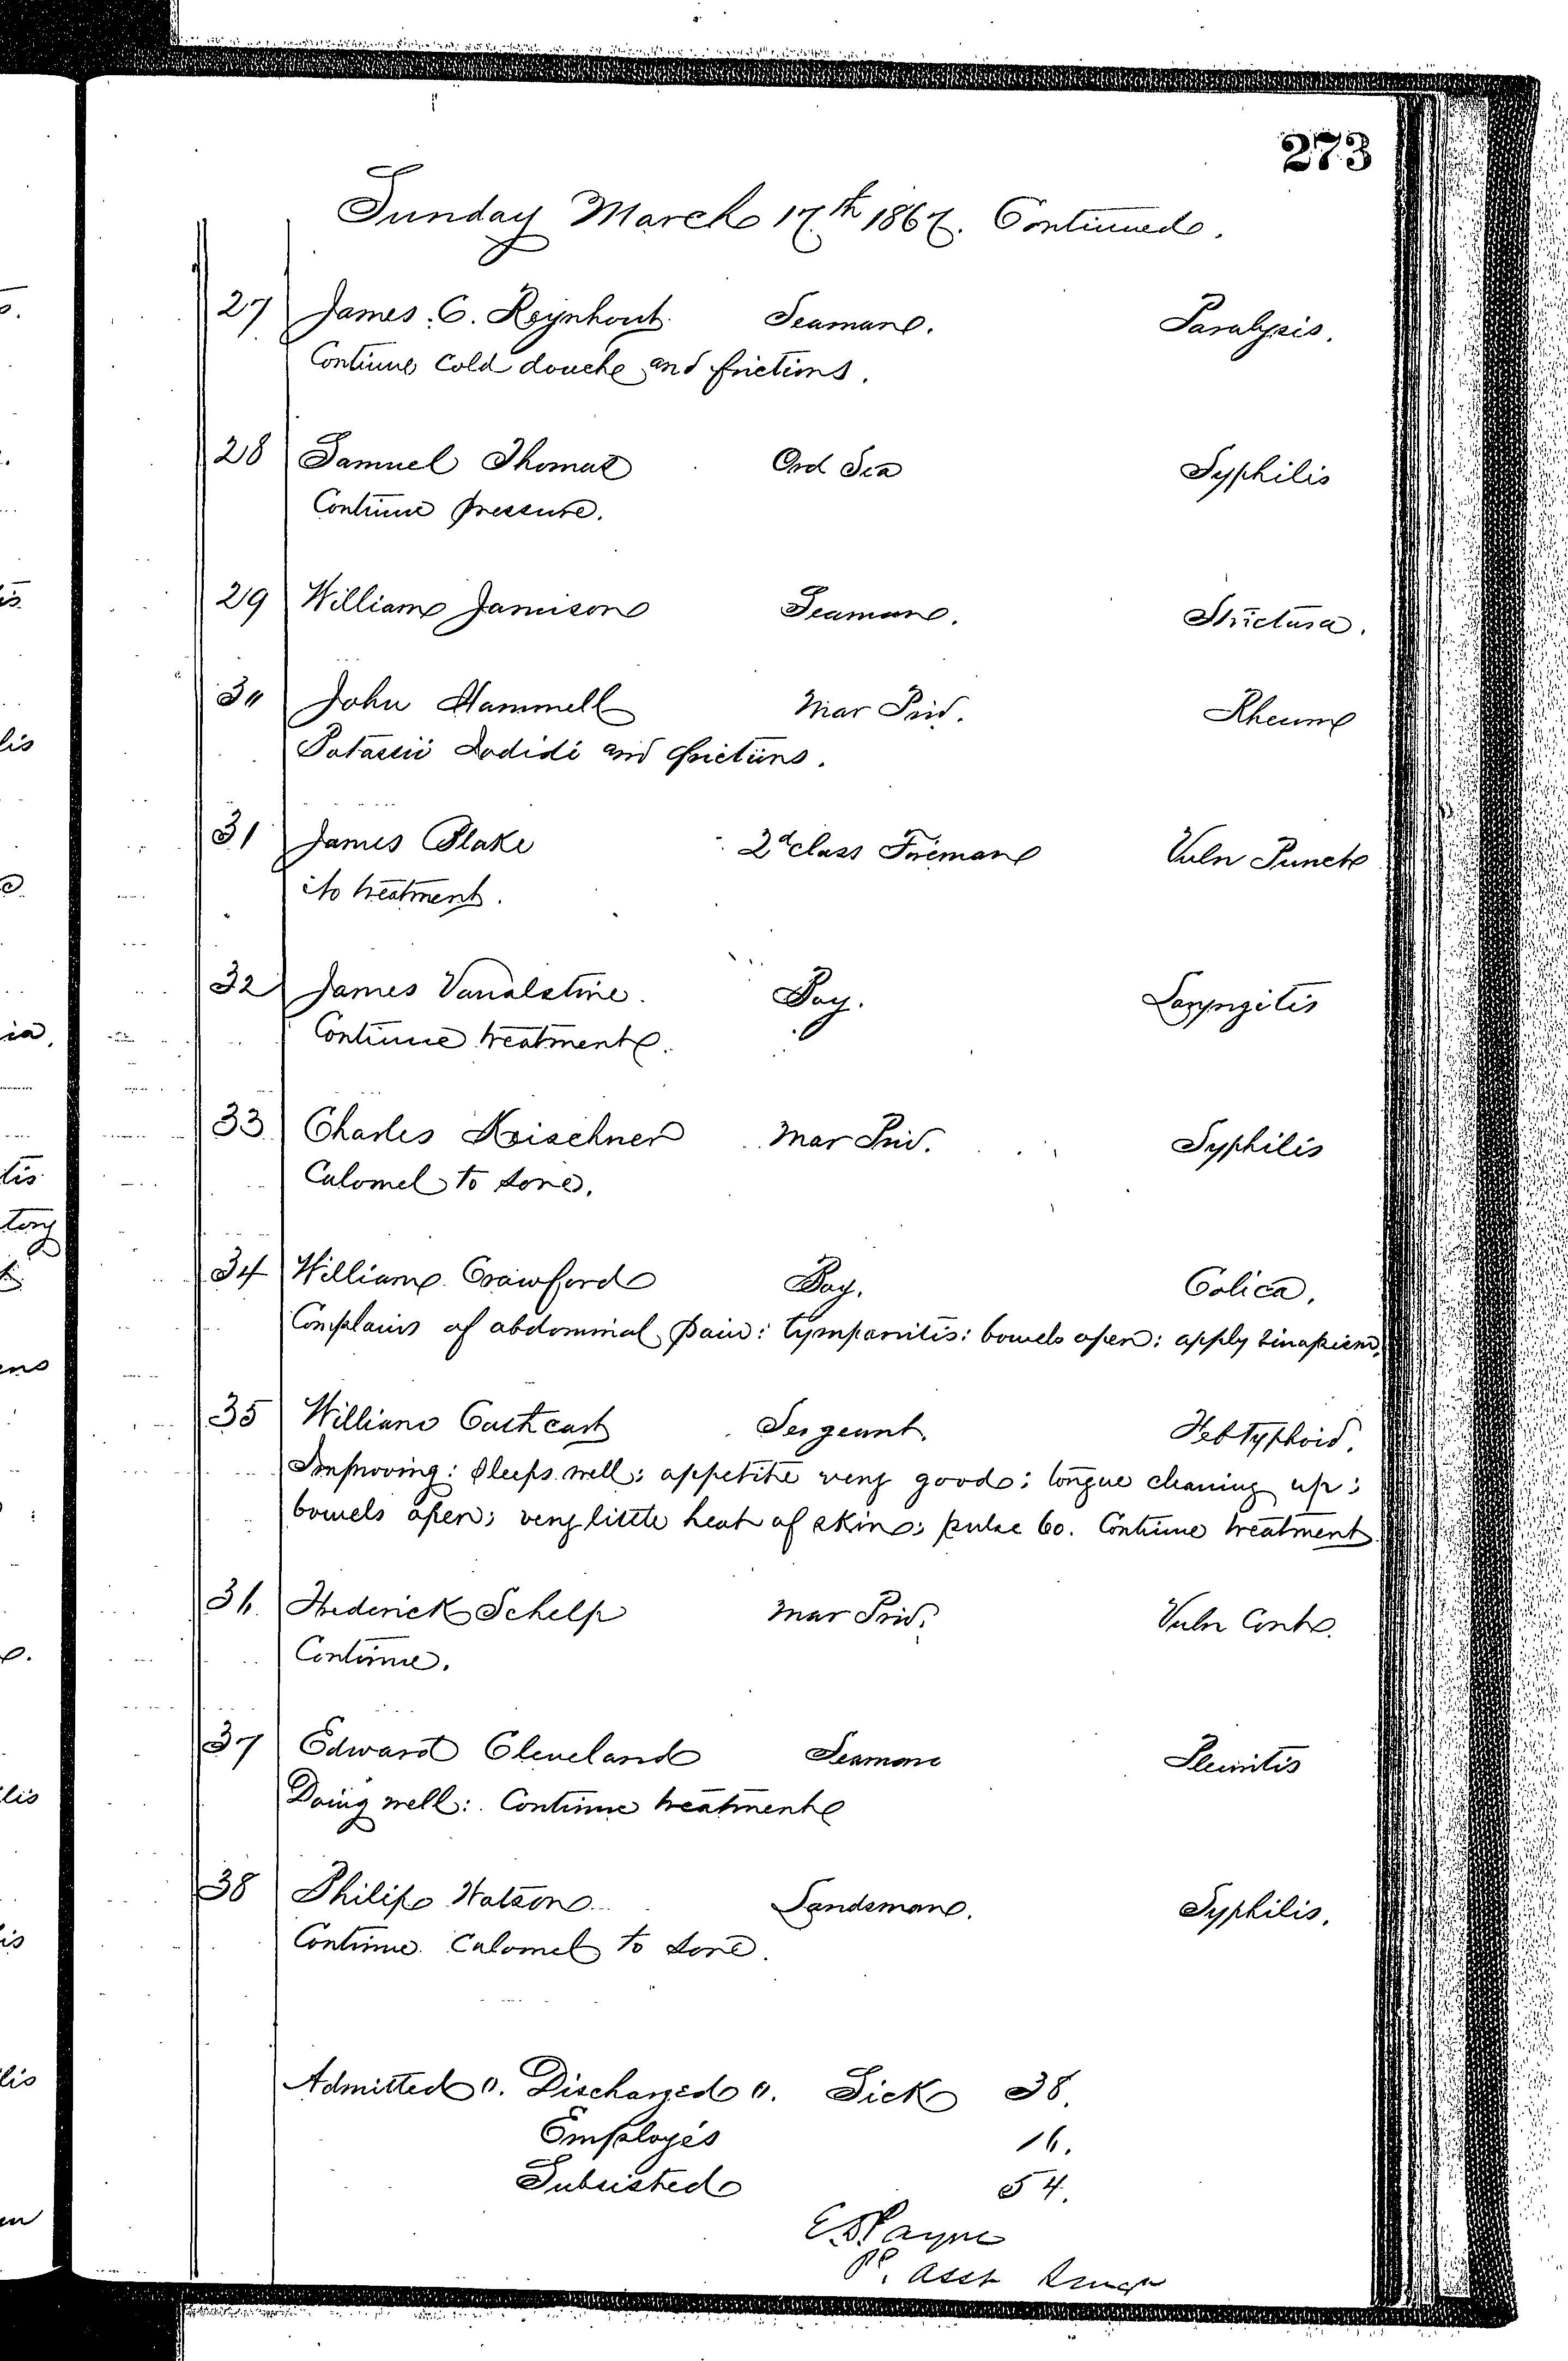 273
Sunday March 17th 1867. Continued.
27 James C. Reynhout Seaman. Paralysis.
Continue cold douche and frictions.
28 Samuel Thomas Ord Sea Syphilis
Continue pressure.
29 William Jamison Seaman. Strictura.
30 John Hammell Mar Priv. Rheum
Potassii Iodidi and frictions.
31 James Blake 2d class Fireman Vuln Punct
No treatment.
32 James Vanalstine. Boy. Laryngitis
Continue treatment.
33 Charles Keischner Mar Priv. Syphilis
Calomel to sore.
34 William Crawford Boy. Colica.
Complains of abdominal pain: tympanitis: bowels open: apply sinapism.
35 William Cathcart Sergeant. Feb Typhoid.
Improving: sleeps well: appetite very good: tongue cleaning up:
bowels open; very little heat of skin: pulse 60. Continue treatment
36 Frederick Schelp Mar Priv. Vuln Cont.
Continue.
37 Edward Cleveland Seaman Pleuritis
Doing well: Continue treatment
38 Philip Watson Landsman. Syphilis.
Continue Calomel to sore.
Admitted 0. Discharged 0. Sick 38.
Employés 16.
Subsisted 54.
E. D. Payne
Pd. Asst Surgn